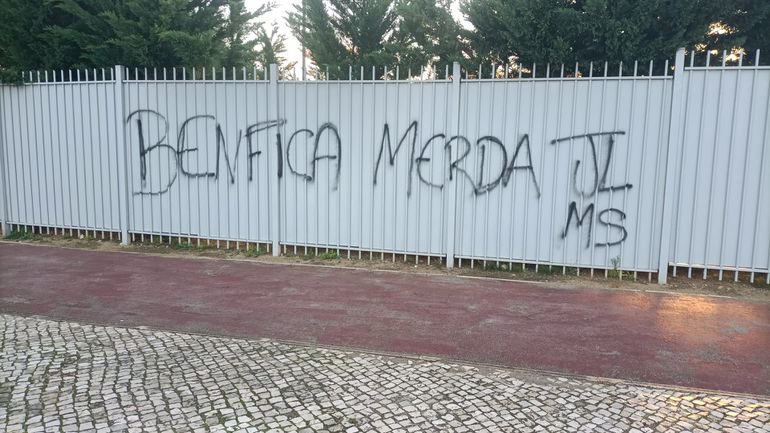 BENFICA MERDA JL
MS